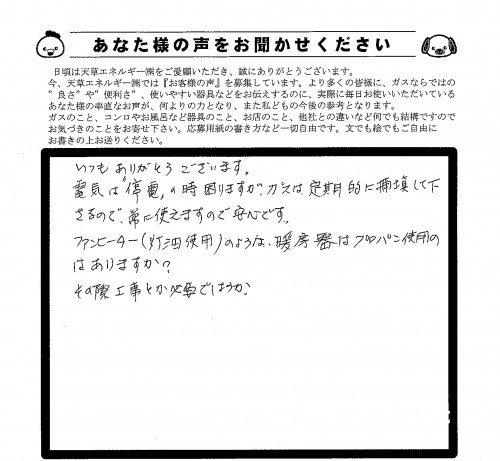 あなた様の声をお聞かせください
日頃は天草エネルギー㈱をご愛顧いただき、誠にありがとうございます。
今、天草エネルギー㈱では『お客様の声』を募集しています。より多くの皆様に、ガスならではの
"良さ"や"便利さ"、使いやすい器具などをお伝えするのに、実際に毎日お使いいただいている
あなた様の率直なお声が、何よりの力となり、また私どもの今後の参考となります。
ガスのこと、コンロやお風呂など器具のこと、お店のこと、他社との違いなど何でも結構ですので
お気づきのことをお寄せ下さい。応募用紙の書き方など一切自由です。文でも絵でもご自由に
お書きの上お送りください。
いつもありがとうございます。
電気は"停電"の時困りますが、ガスは定期的に補填して下
さるので、常に使えますので安心です。
ファンヒーター(灯油使用)のような、暖房器はプロパン使用の
はありますか?
その際工事とか必要でしょうか?